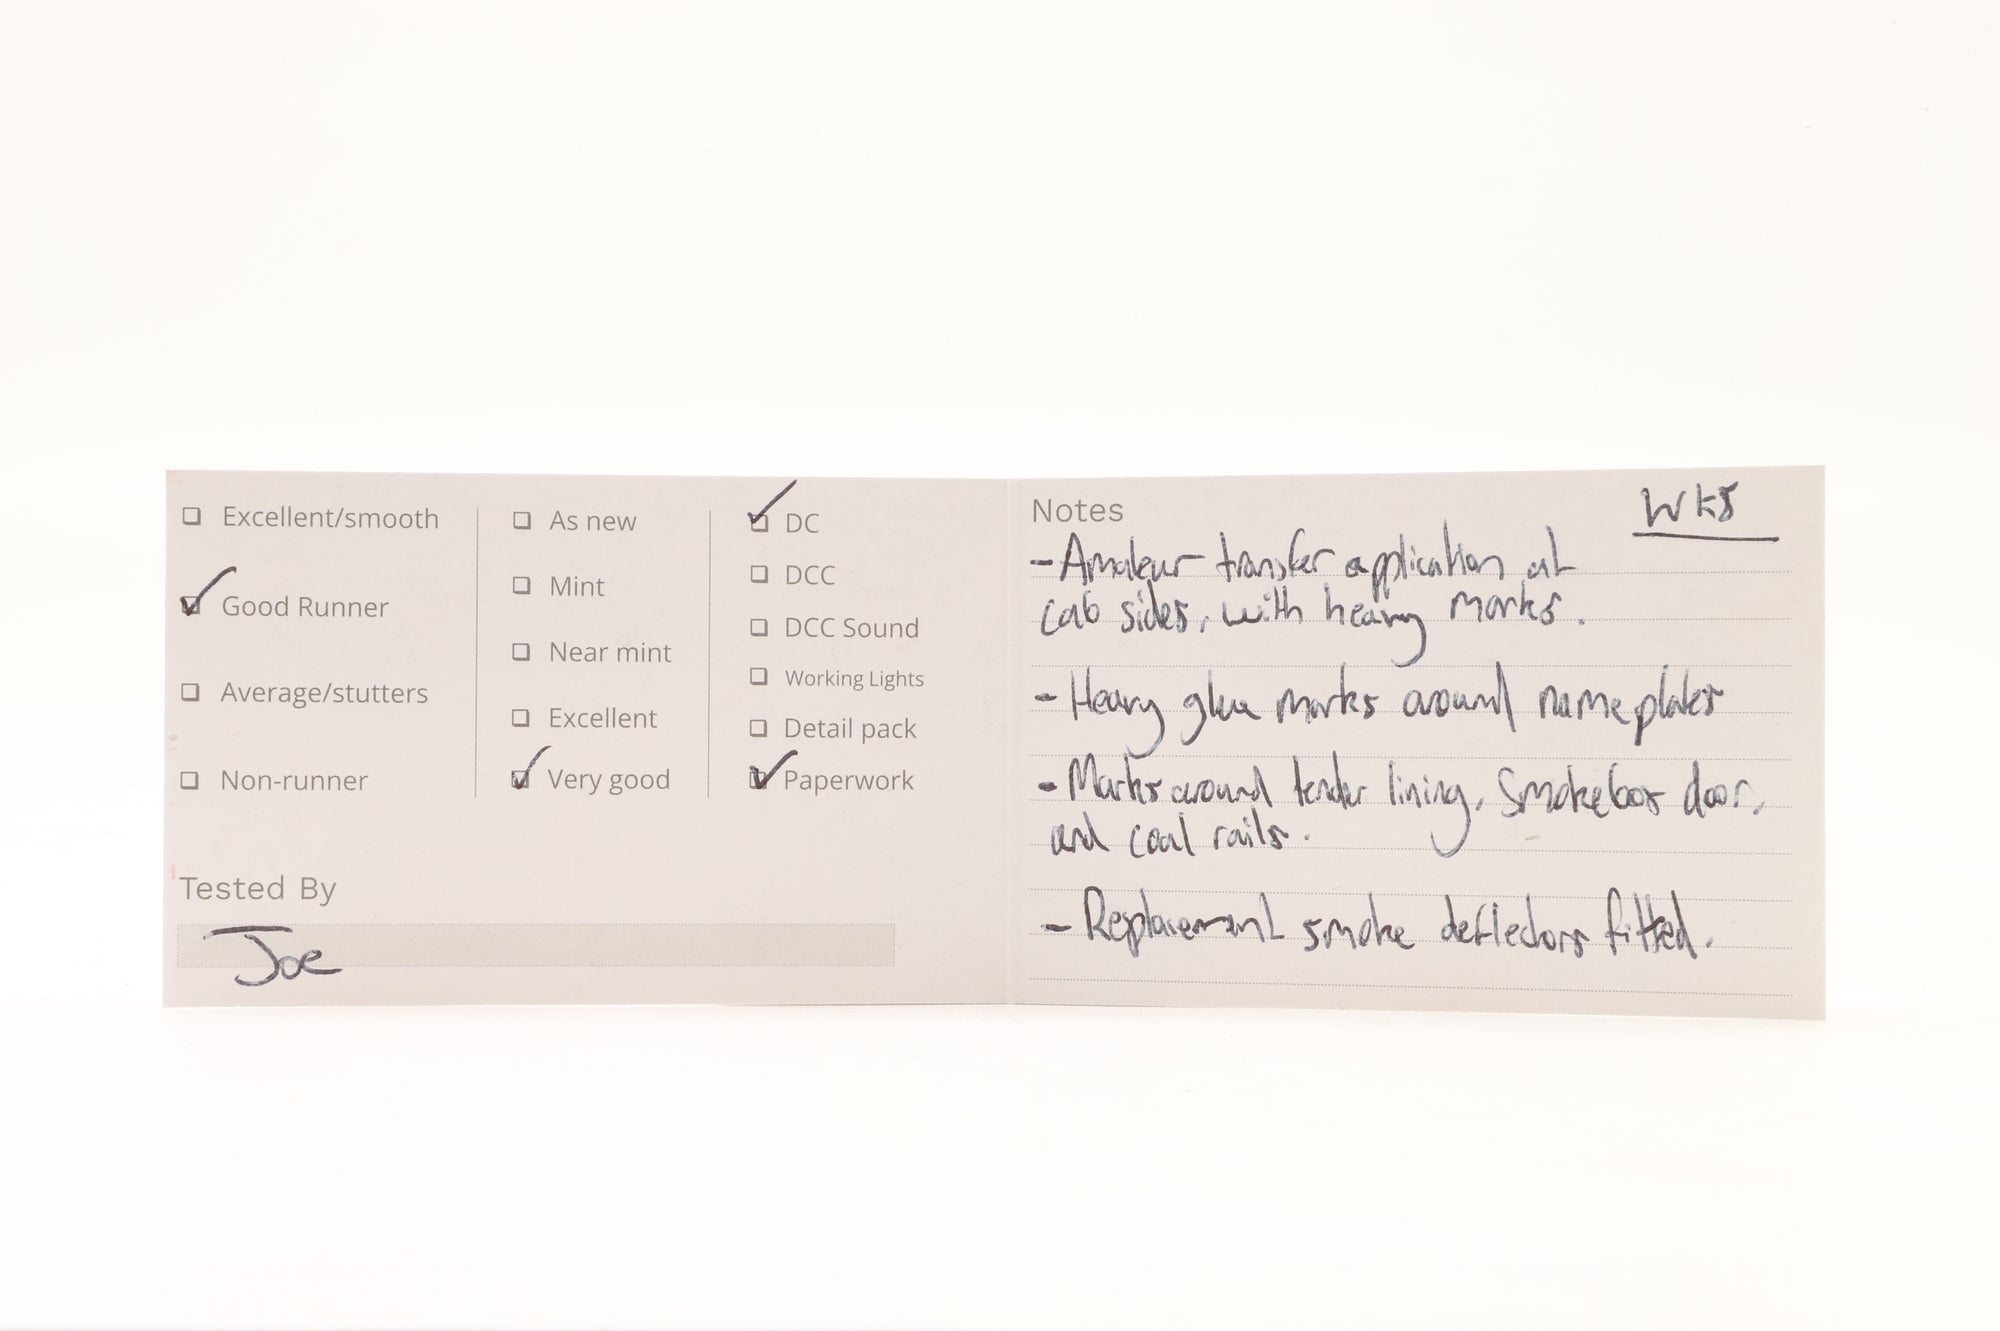 Excellent/smooth
Good Runner
Average/stutters
Non-runner
As new
Mint
Near mint
Excellent
Very good
DC
DCC
DCC Sound
Working Lights
Detail pack
Paperwork
Tested By
Joe
Notes
- Amateur transfer application at
cab sides, with heavy marks.
- Heavy glue marks around nameplates
- Marks around tender lining, smokebox door,
and coal rails.
- Replacement smoke deflectors fitted.